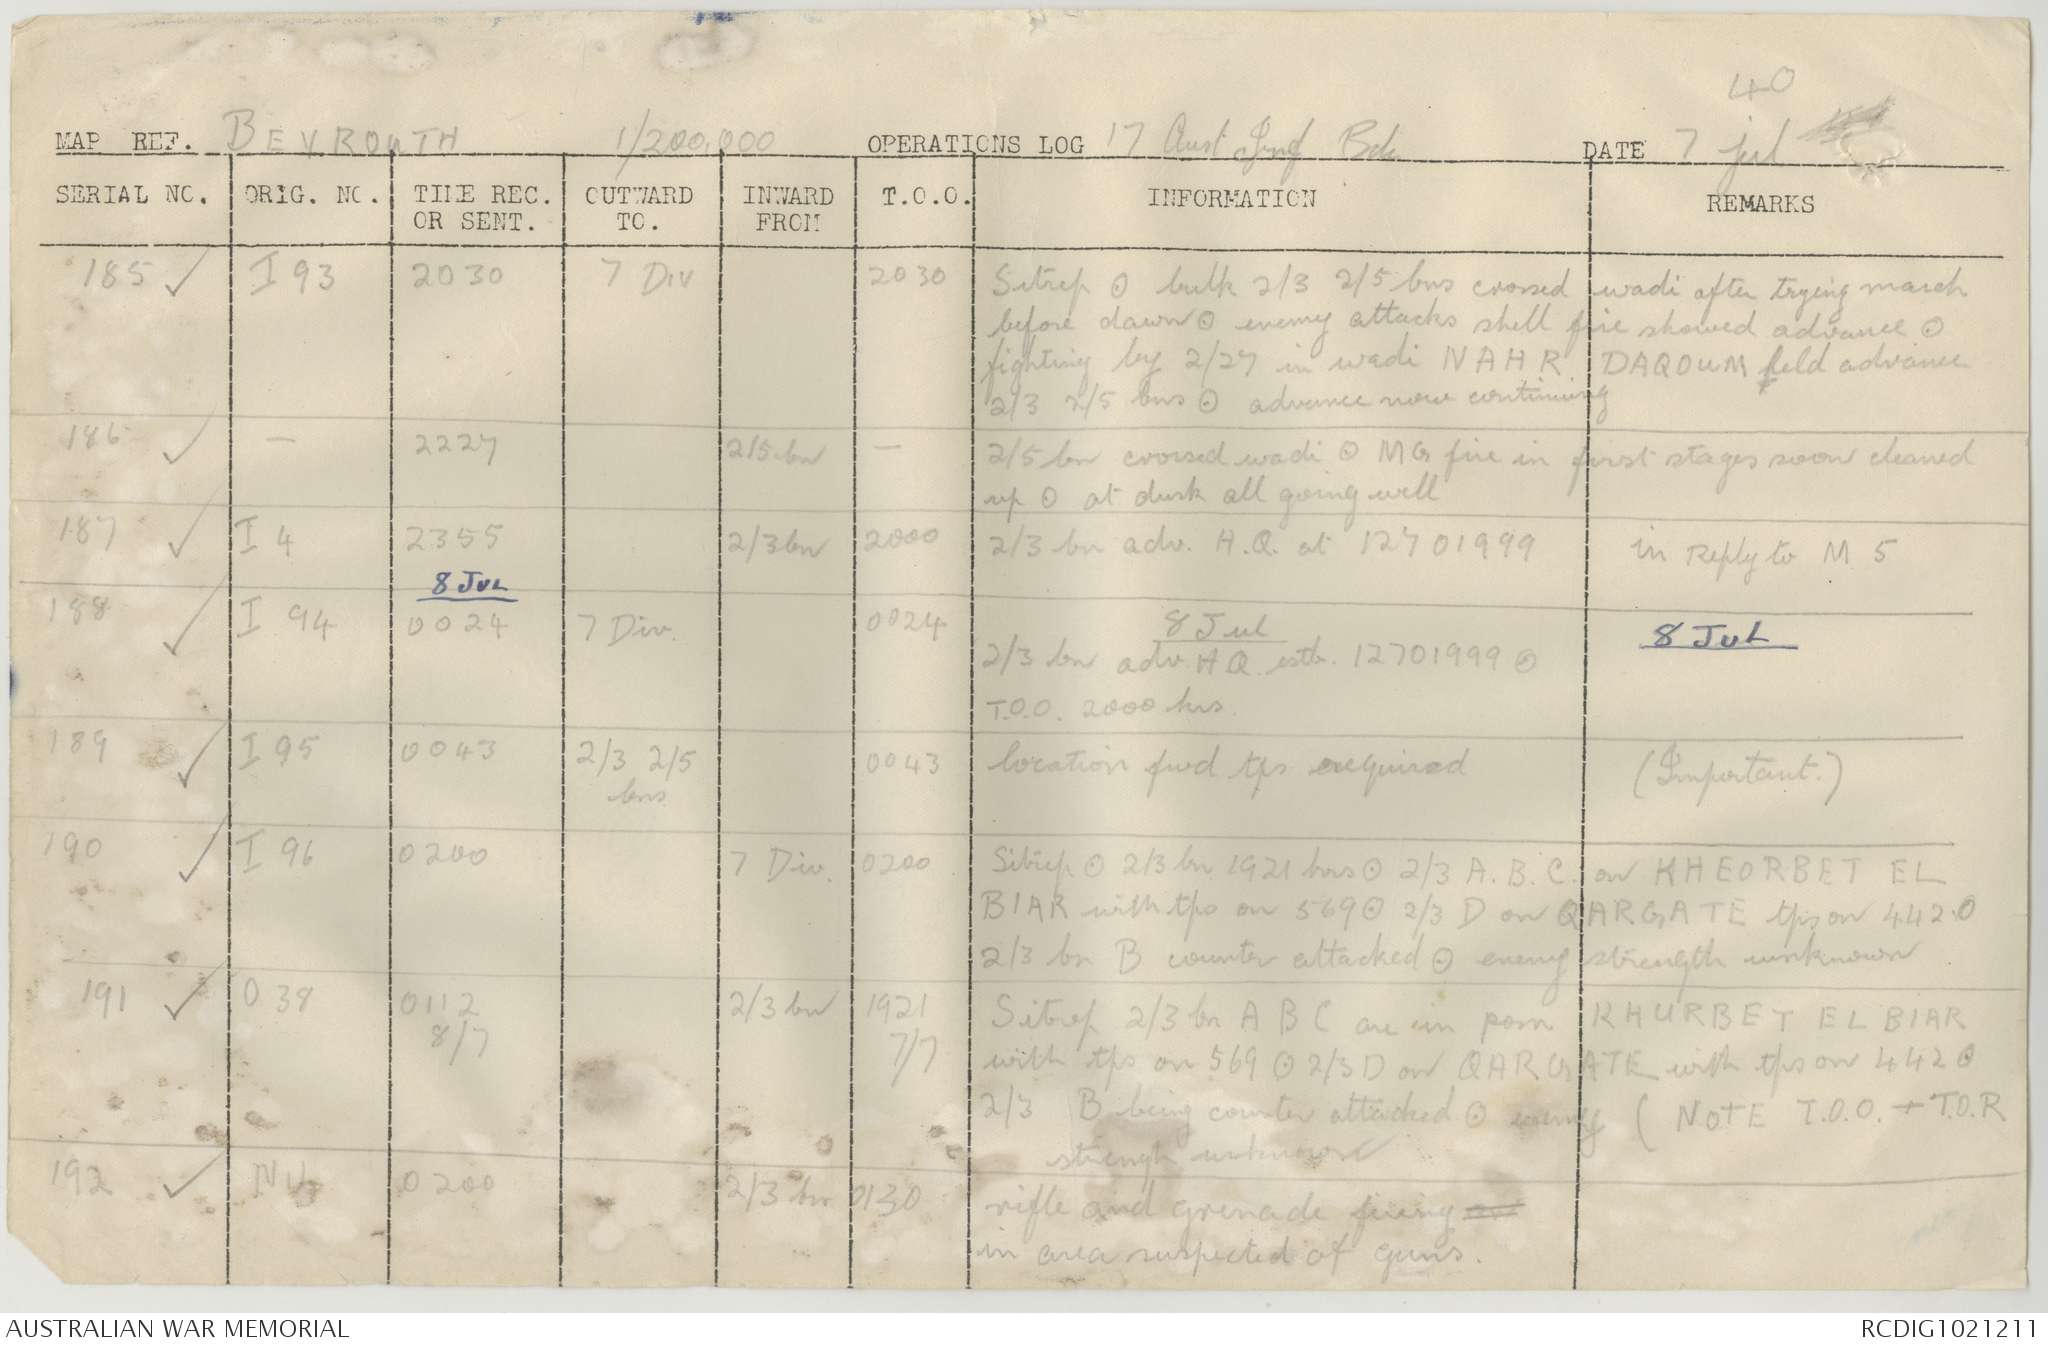 40
MAP REF. BEYROUTH 1/200,000 OPERATIONS LOG 17 Aust Inf Bde DATE 7 Jul
SERIAL NO. ORIG. NO. TIME REC. OR SENT. OUTWARD TO. INWARD FROM T.O.O. INFORMATION REMARKS
185 ✓ I 93 2030 7 Div 2030 Sitrep ⊙ bulk 2/3 2/5 bns crossed wadi after trying march
before dawn ⊙ enemy attacks shell fire showed advance ⊙
fighting by 2/27 in wadi NAHR DAQOUM held advance
2/3 2/5 bns ⊙ advance now continuing
186 ✓ — 2227 2/5 bn — 2/5 bn crossed wadi ⊙ MG fire in first stages soon cleaned
up ⊙ at dusk all going well
187 ✓ I 4 2355 2/3 bn 2000 2/3 bn adv. H.Q. at 12701999 in reply to M 5
8 JUL
8 Jul 8 JUL
188 ✓ I 94 0024 7 Div. 0024 2/3 bn adv. HQ estb. 12701999 ⊙
T.O.O. 2000 hrs.
189 ✓ I 95 0043 2/3 2/5 0043 location fwd tps required (Important.)
bns
190 ✓ I 96 0200 7 Div. 0200 Sitrep ⊙ 2/3 bn 1921 hrs ⊙ 2/3 A.B.C. on KHEORBET EL
BIAR with tps on 569 ⊙ 2/3 D on QARGATE tps on 442 ⊙
2/3 bn B counter attacked ⊙ enemy strength unknown
191 ✓ O 38 0112 2/3 bn 1921 Sitrep 2/3 bn A B C are in posn KHURBET EL BIAR
8/7 7/7 with tps on 569 ⊙ 2/3 D on QARGATE with tps on 442 ⊙
2/3 B being counter attacked ⊙ enemy ( NOTE T.O.O. + T.O.R
strength unknown
192 ✓ NIL 0200 2/3 bn 0130 rifle and grenade firing
in area suspected of guns.
AUSTRALIAN WAR MEMORIAL RCDIG1021211